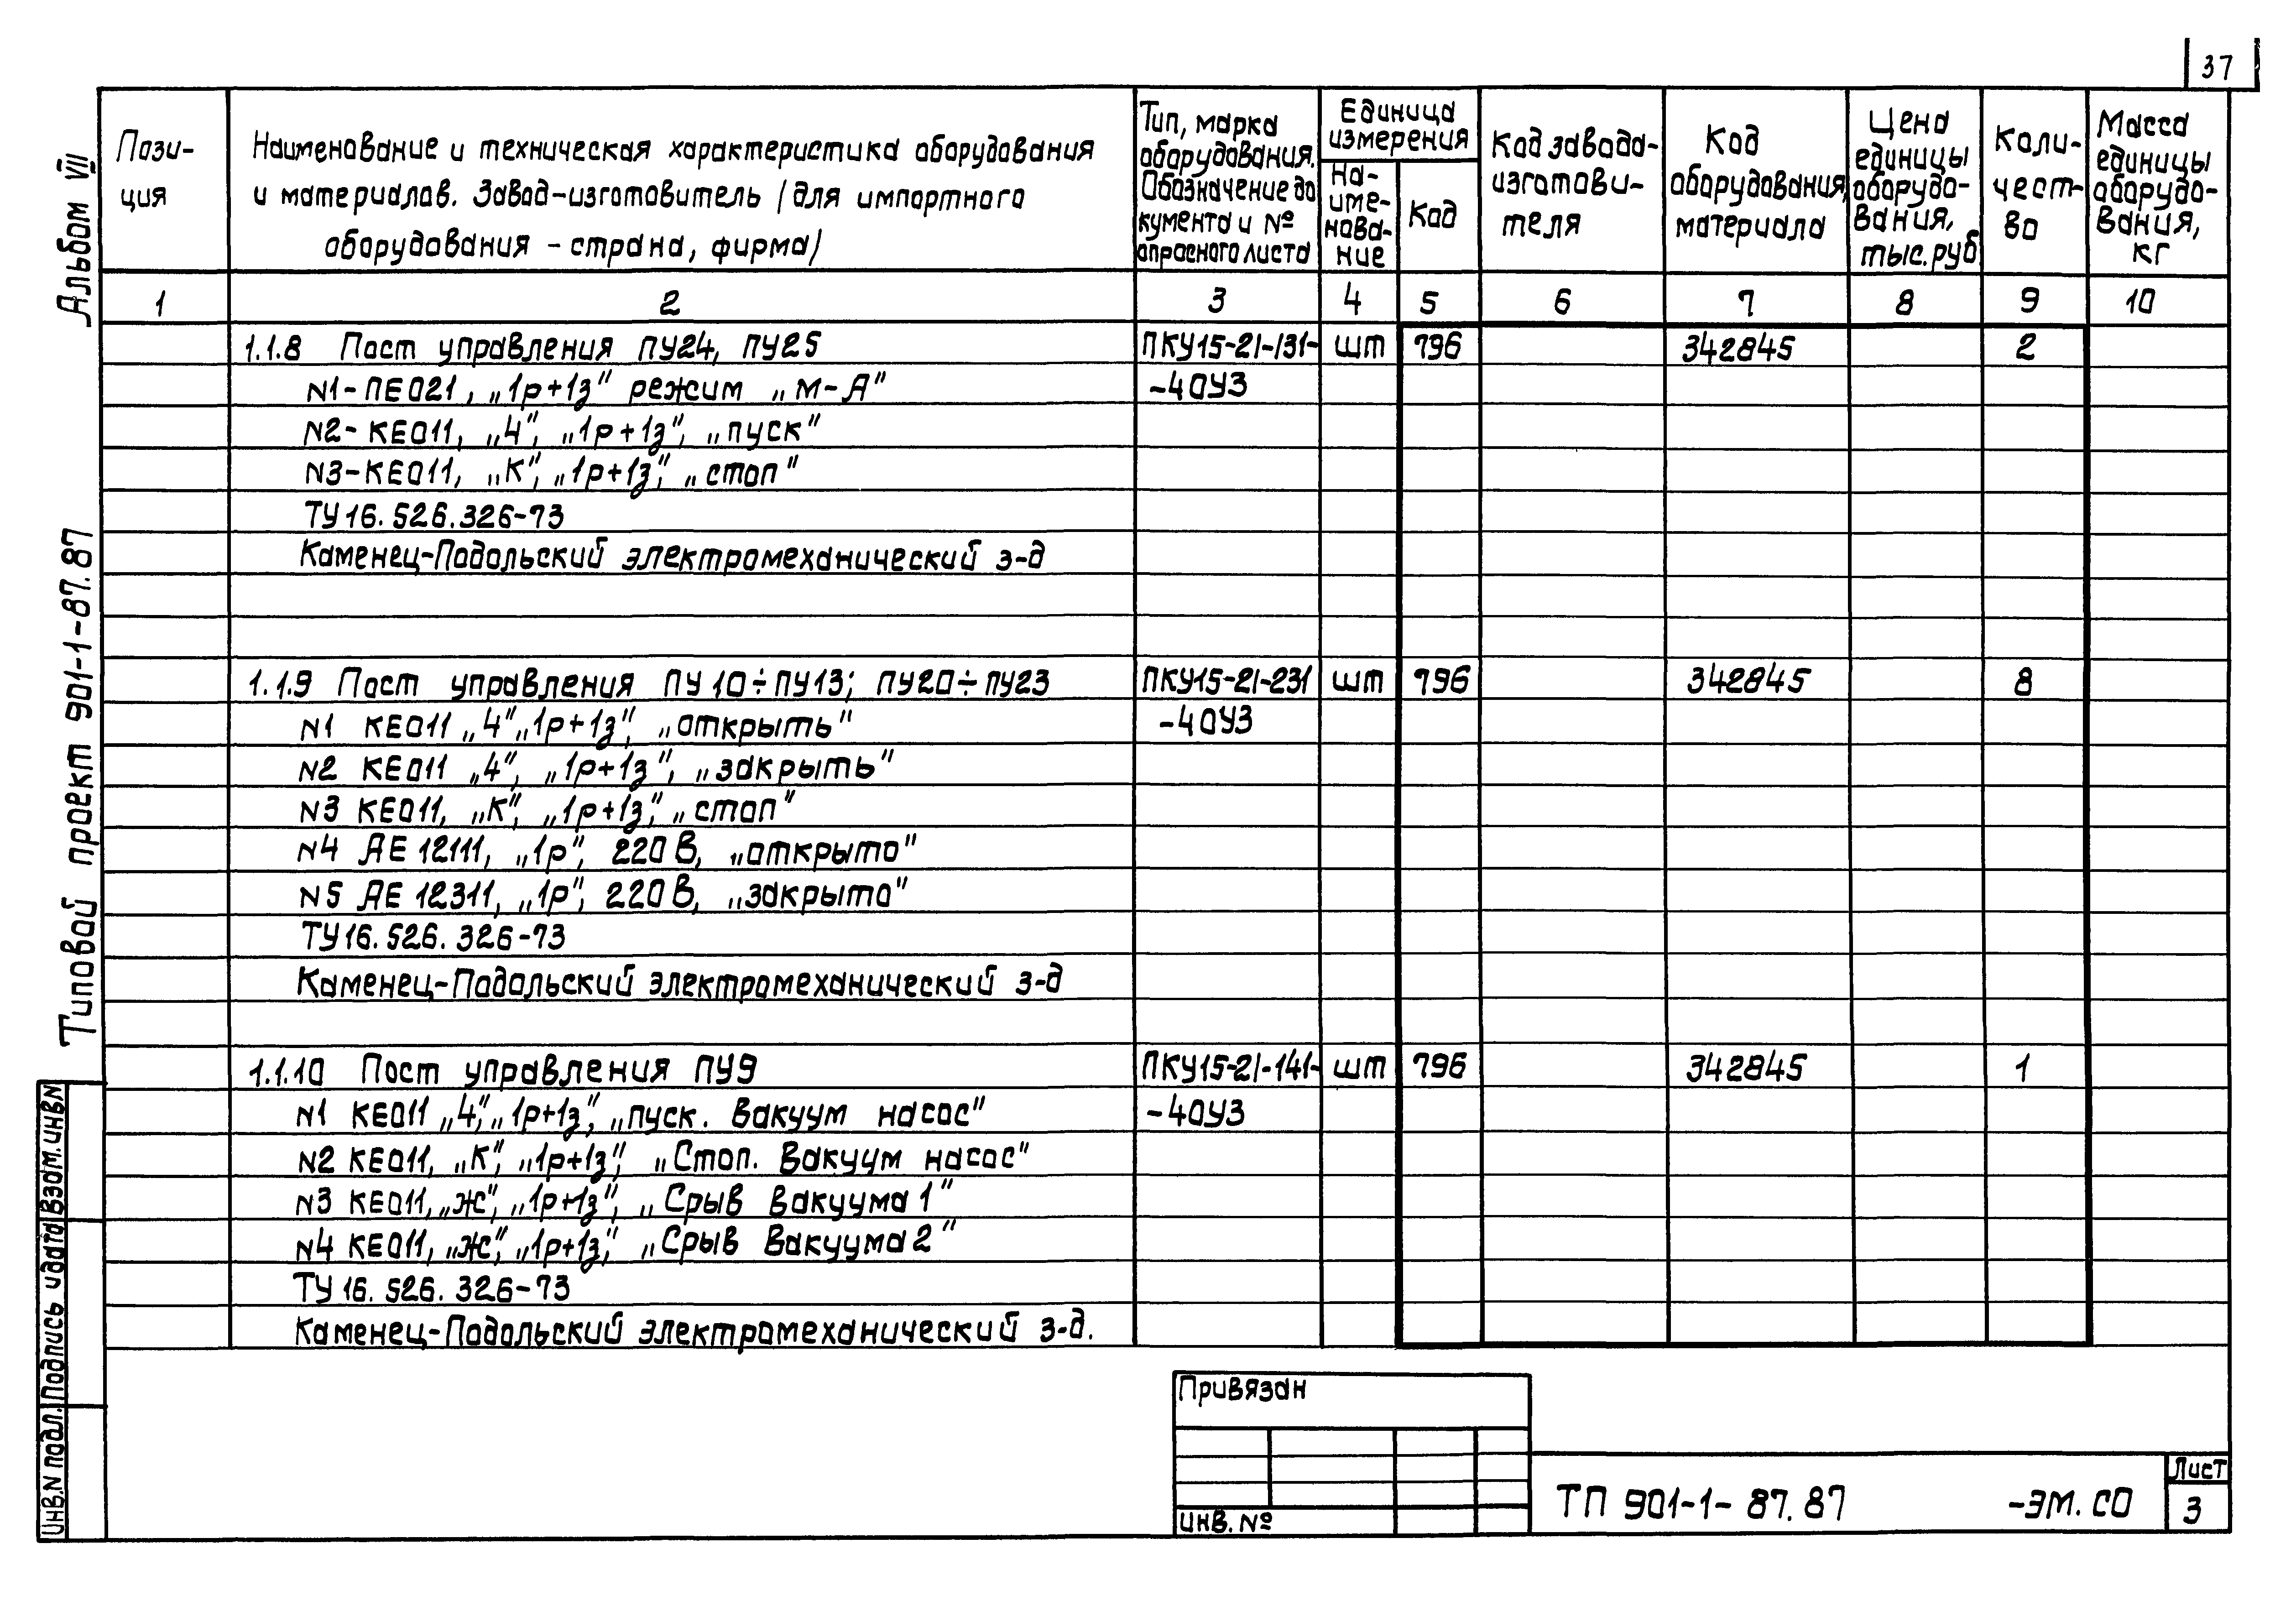 37
Альбом VII
Типовой проект 901-1-87.87
Пози-
ция
Наименование и техническая характеристика оборудования
и материалов. Завод-изготовитель (для импортного
оборудования - страна, фирма)
Тип, марка
оборудования.
Обозначение до
кумента и №
опросного листа
Единица
измерения
На-
име-
нова-
ние
Код
Код завода-
изготови-
теля
Код
оборудования,
материала
Цена
единицы
оборудо-
вания,
тыс.руб
Коли-
чест-
во
Масса
единицы
оборудо-
вания,
кг
1 2 3 4 5 6 7 8 9 10
1.1.8 Пост управления ПУ24, ПУ25 ПКУ15-21-131- шт 796 342845 2
N1-ПЕ021, „1р+1з" режим „М-А" -40У3
N2-КЕ011, „Ч", „1р+1з", „пуск"
N3-КЕ011, „К", „1р+1з", „стоп"
ТУ16.526.326-73
Каменец-Подольский электромеханический з-д
1.1.9 Пост управления ПУ10÷ПУ13; ПУ20÷ПУ23 ПКУ15-21-231 шт 796 342845 8
N1 КЕ011 „Ч" „1р+1з", „открыть" -40У3
N2 КЕ011 „Ч", „1р+1з", „закрыть"
N3 КЕ011, „К", „1р+1з", „стоп"
N4 АЕ12111, „1р", 220В, „открыто"
N5 АЕ12311, „1р", 220В, „закрыто"
ТУ16.526.326-73
Каменец-Подольский электромеханический з-д
1.1.10 Пост управления ПУ9 ПКУ15-21-141- шт 796 342845 1
N1 КЕ011 „Ч", „1р+1з", „пуск. Вакуум насос" -40У3
N2 КЕ011, „К", „1р+1з", „Стоп. Вакуум насос"
N3 КЕ011, „Ж", „1р+1з", „Срыв Вакуума 1"
N4 КЕ011, „Ж", „1р+1з", „Срыв Вакуума 2"
ТУ16.526.326-73
Каменец-Подольский электромеханический з-д.
Инв.N подл. Подпись и дата Взам.инвN
Привязан
Инв. №
ТП 901-1-87.87 -ЭМ.СО
Лист
3